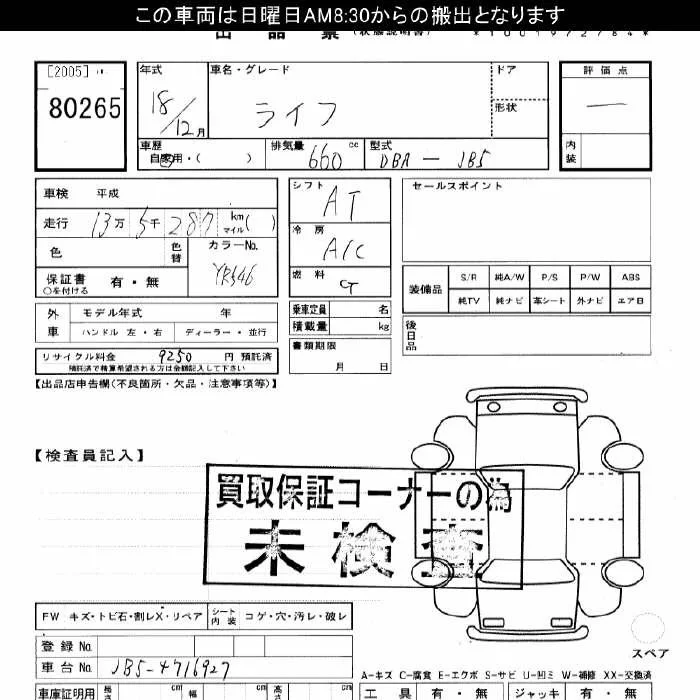 この車両は日曜日AM8:30からの搬出となります
出品票 (状態説明書)
[2005]
80265
年式
18/12月
車名・グレード
ライフ
ドア
形状
評価点
—
内装
車歴
自家用・(　　)
排気量
660 cc
型式
DBA-JB5
車検 平成
走行 13万 5千 287 km マイル( )
色
色替
カラーNo.
YR546
保証書 有・無
○を付ける
シフト
AT
冷房
A/C
燃料
G
セールスポイント
装備品
S/R 純A/W P/S P/W ABS
純TV 純ナビ 革シート 外ナビ エアB
外車
モデル年式 年
ハンドル 左・右 ディーラー・並行
乗車定員 名
積載量 kg
後日品
リサイクル料金 9250 円 預託済
預託済で精算希望される方は金額記入して下さい
書類期限
月 日
【出品店申告欄(不良箇所・欠品・注意事項等)】
【検査員記入】
買取保証コーナーの為
未検査
FW キズ・トビ石・割レX・リペア シート内装 コゲ・穴・汚レ・破レ
スペア
登録No.
車台No. JB5-4716927
A-キズ C-腐食 E-エクボ S-サビ U-凹ミ W-補修 XX-交換済
車庫証明用 長さ cm 幅 cm 高さ cm
工具 有・無 ジャッキ 有・無